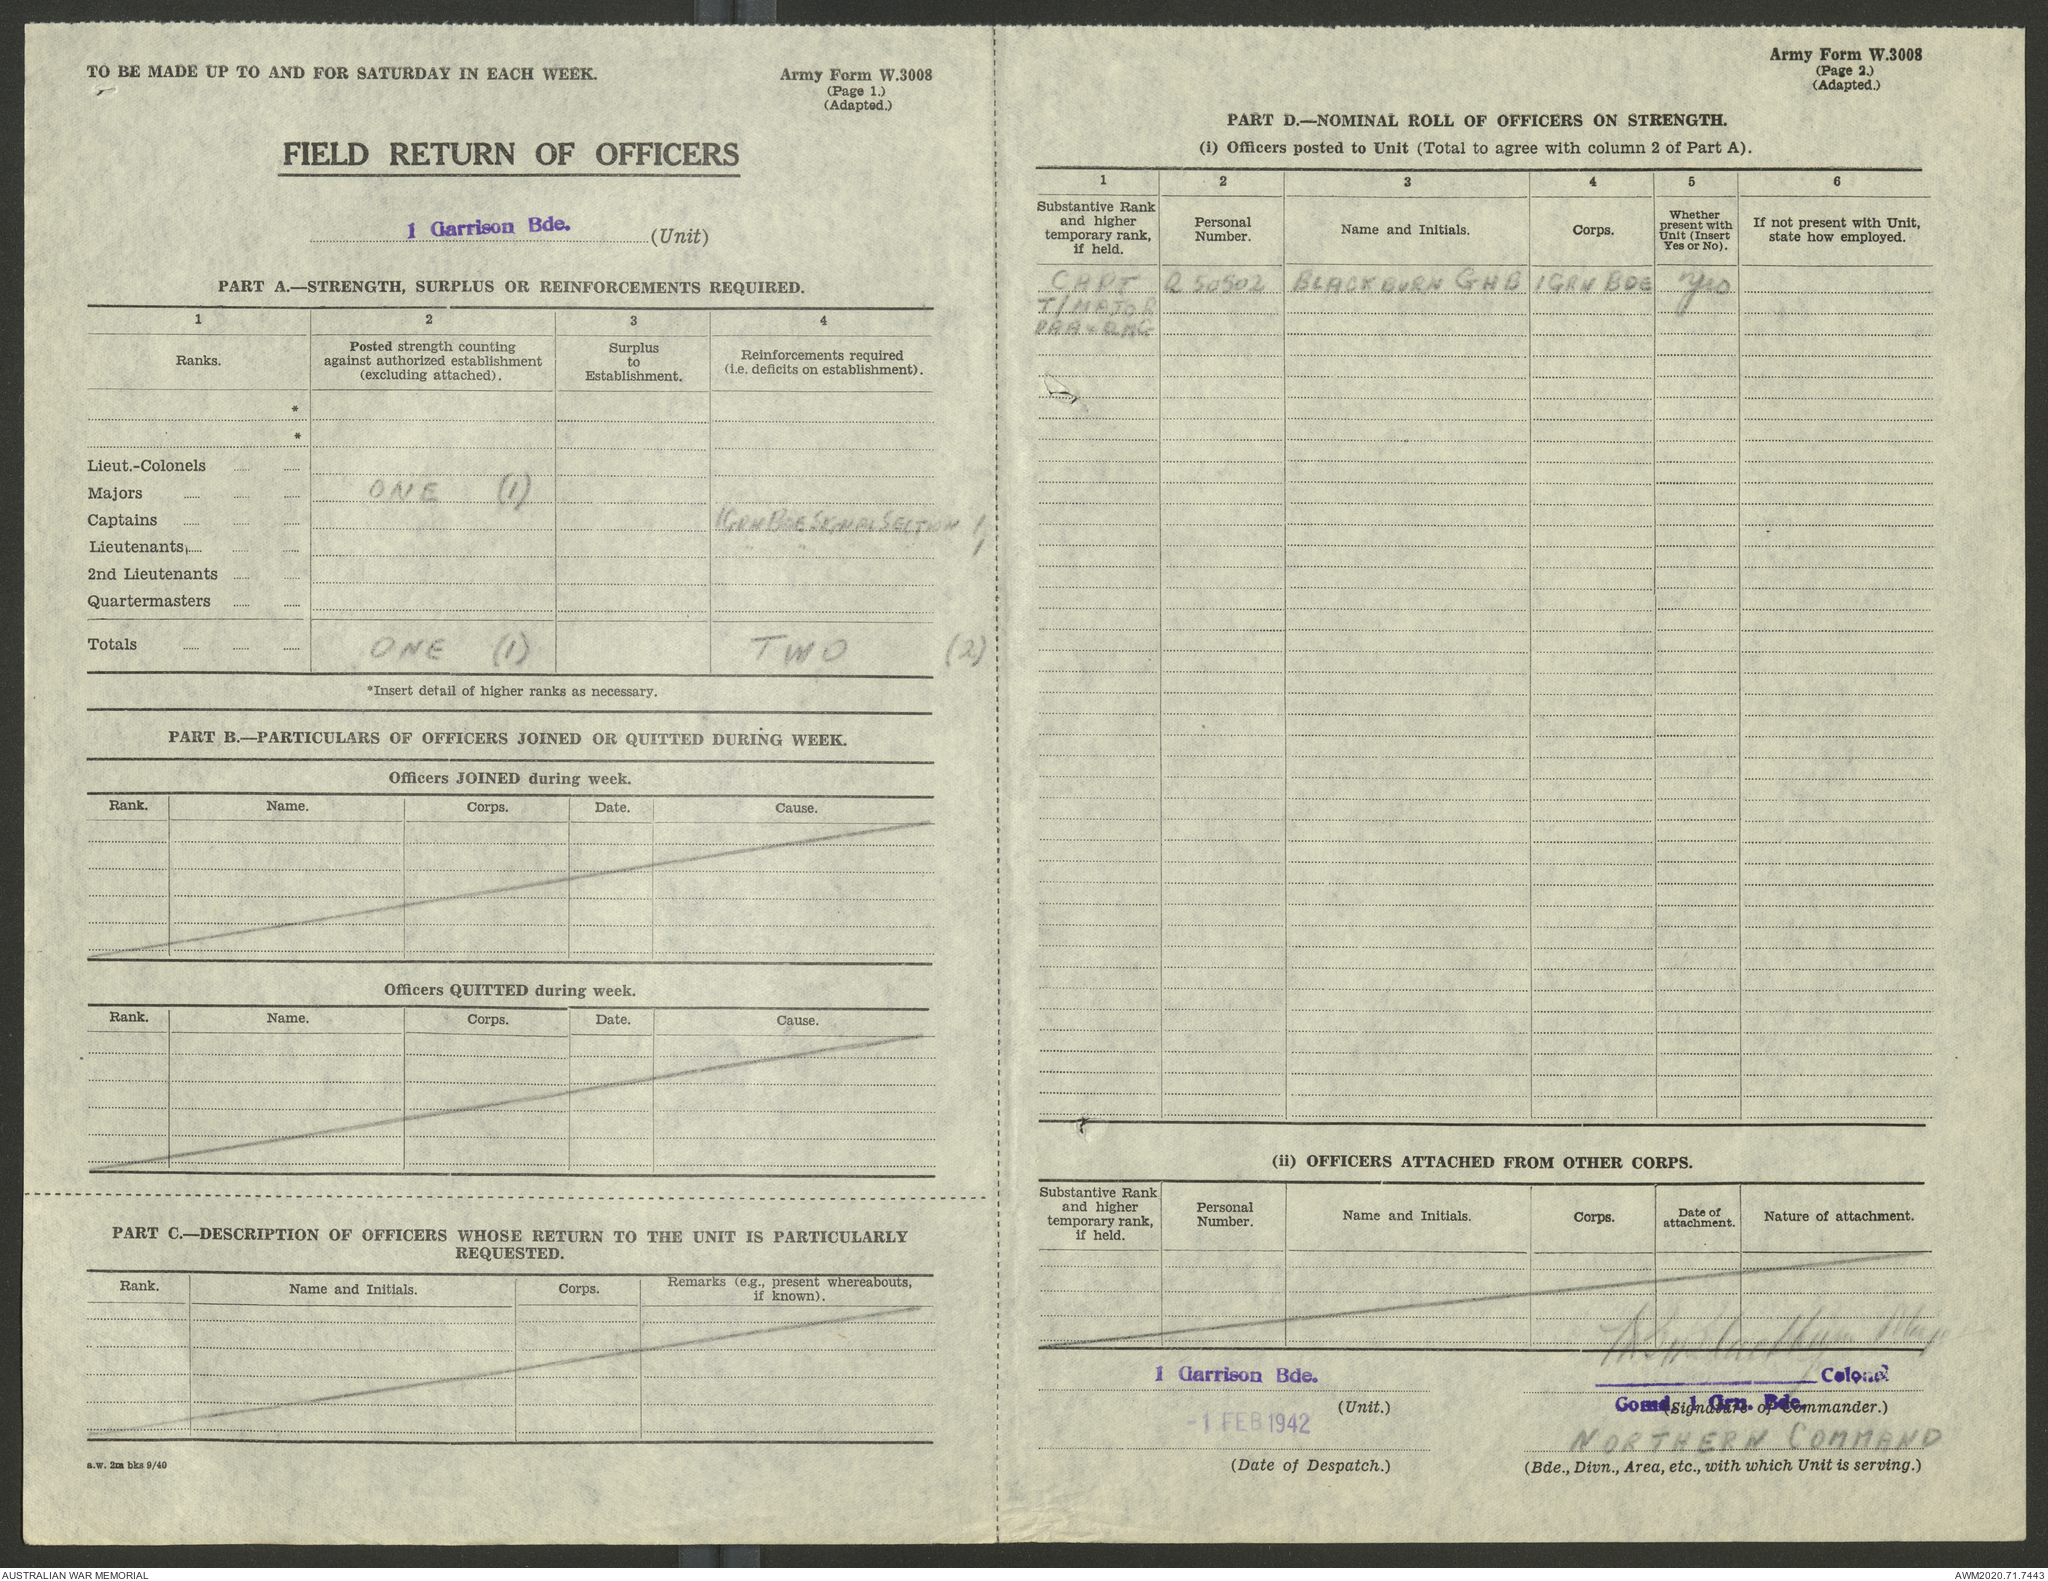 TO BE MADE UP TO AND FOR SATURDAY IN EACH WEEK.
Army Form W.3008
(Page 1.)
(Adapted.)
FIELD RETURN OF OFFICERS
1 Garrison Bde. (Unit)
PART A.—STRENGTH, SURPLUS OR REINFORCEMENTS REQUIRED.
1 2 3 4
Ranks.
Posted strength counting
against authorized establishment
(excluding attached).
Surplus
to
Establishment.
Reinforcements required
(i.e. deficits on establishment).
*
*
Lieut.-Colonels
Majors ONE (1)
Captains 1 GRN BDE SIGNAL SECTION 1
Lieutenants " " " 1
2nd Lieutenants
Quartermasters
Totals ONE (1) TWO (2)
*Insert detail of higher ranks as necessary.
PART B.—PARTICULARS OF OFFICERS JOINED OR QUITTED DURING WEEK.
Officers JOINED during week.
Rank. Name. Corps. Date. Cause.
Officers QUITTED during week.
Rank. Name. Corps. Date. Cause.
PART C.—DESCRIPTION OF OFFICERS WHOSE RETURN TO THE UNIT IS PARTICULARLY
REQUESTED.
Rank. Name and Initials. Corps.
Remarks (e.g., present whereabouts,
if known).
a.w. 2m bks 9/40
Army Form W.3008
(Page 2.)
(Adapted.)
PART D.—NOMINAL ROLL OF OFFICERS ON STRENGTH.
(i) Officers posted to Unit (Total to agree with column 2 of Part A).
1 2 3 4 5 6
Substantive Rank
and higher
temporary rank,
if held.
Personal
Number.
Name and Initials.
Corps.
Whether
present with
Unit (Insert
Yes or No).
If not present with Unit,
state how employed.
CAPT Q 50502 BLACKBURN GHB 1 GRN BDE Yes
T/MAJOR
DAA & QMG
(ii) OFFICERS ATTACHED FROM OTHER CORPS.
Substantive Rank
and higher
temporary rank,
if held.
Personal
Number.
Name and Initials.
Corps.
Date of
attachment.
Nature of attachment.
1 Garrison Bde.
(Unit.)
-1 FEB 1942
(Date of Despatch.)
Colonel
Comd. 1 Grn. Bde.
(Signature of Commander.)
NORTHERN COMMAND
(Bde., Divn., Area, etc., with which Unit is serving.)
AUSTRALIAN WAR MEMORIAL
AWM2020.71.7443